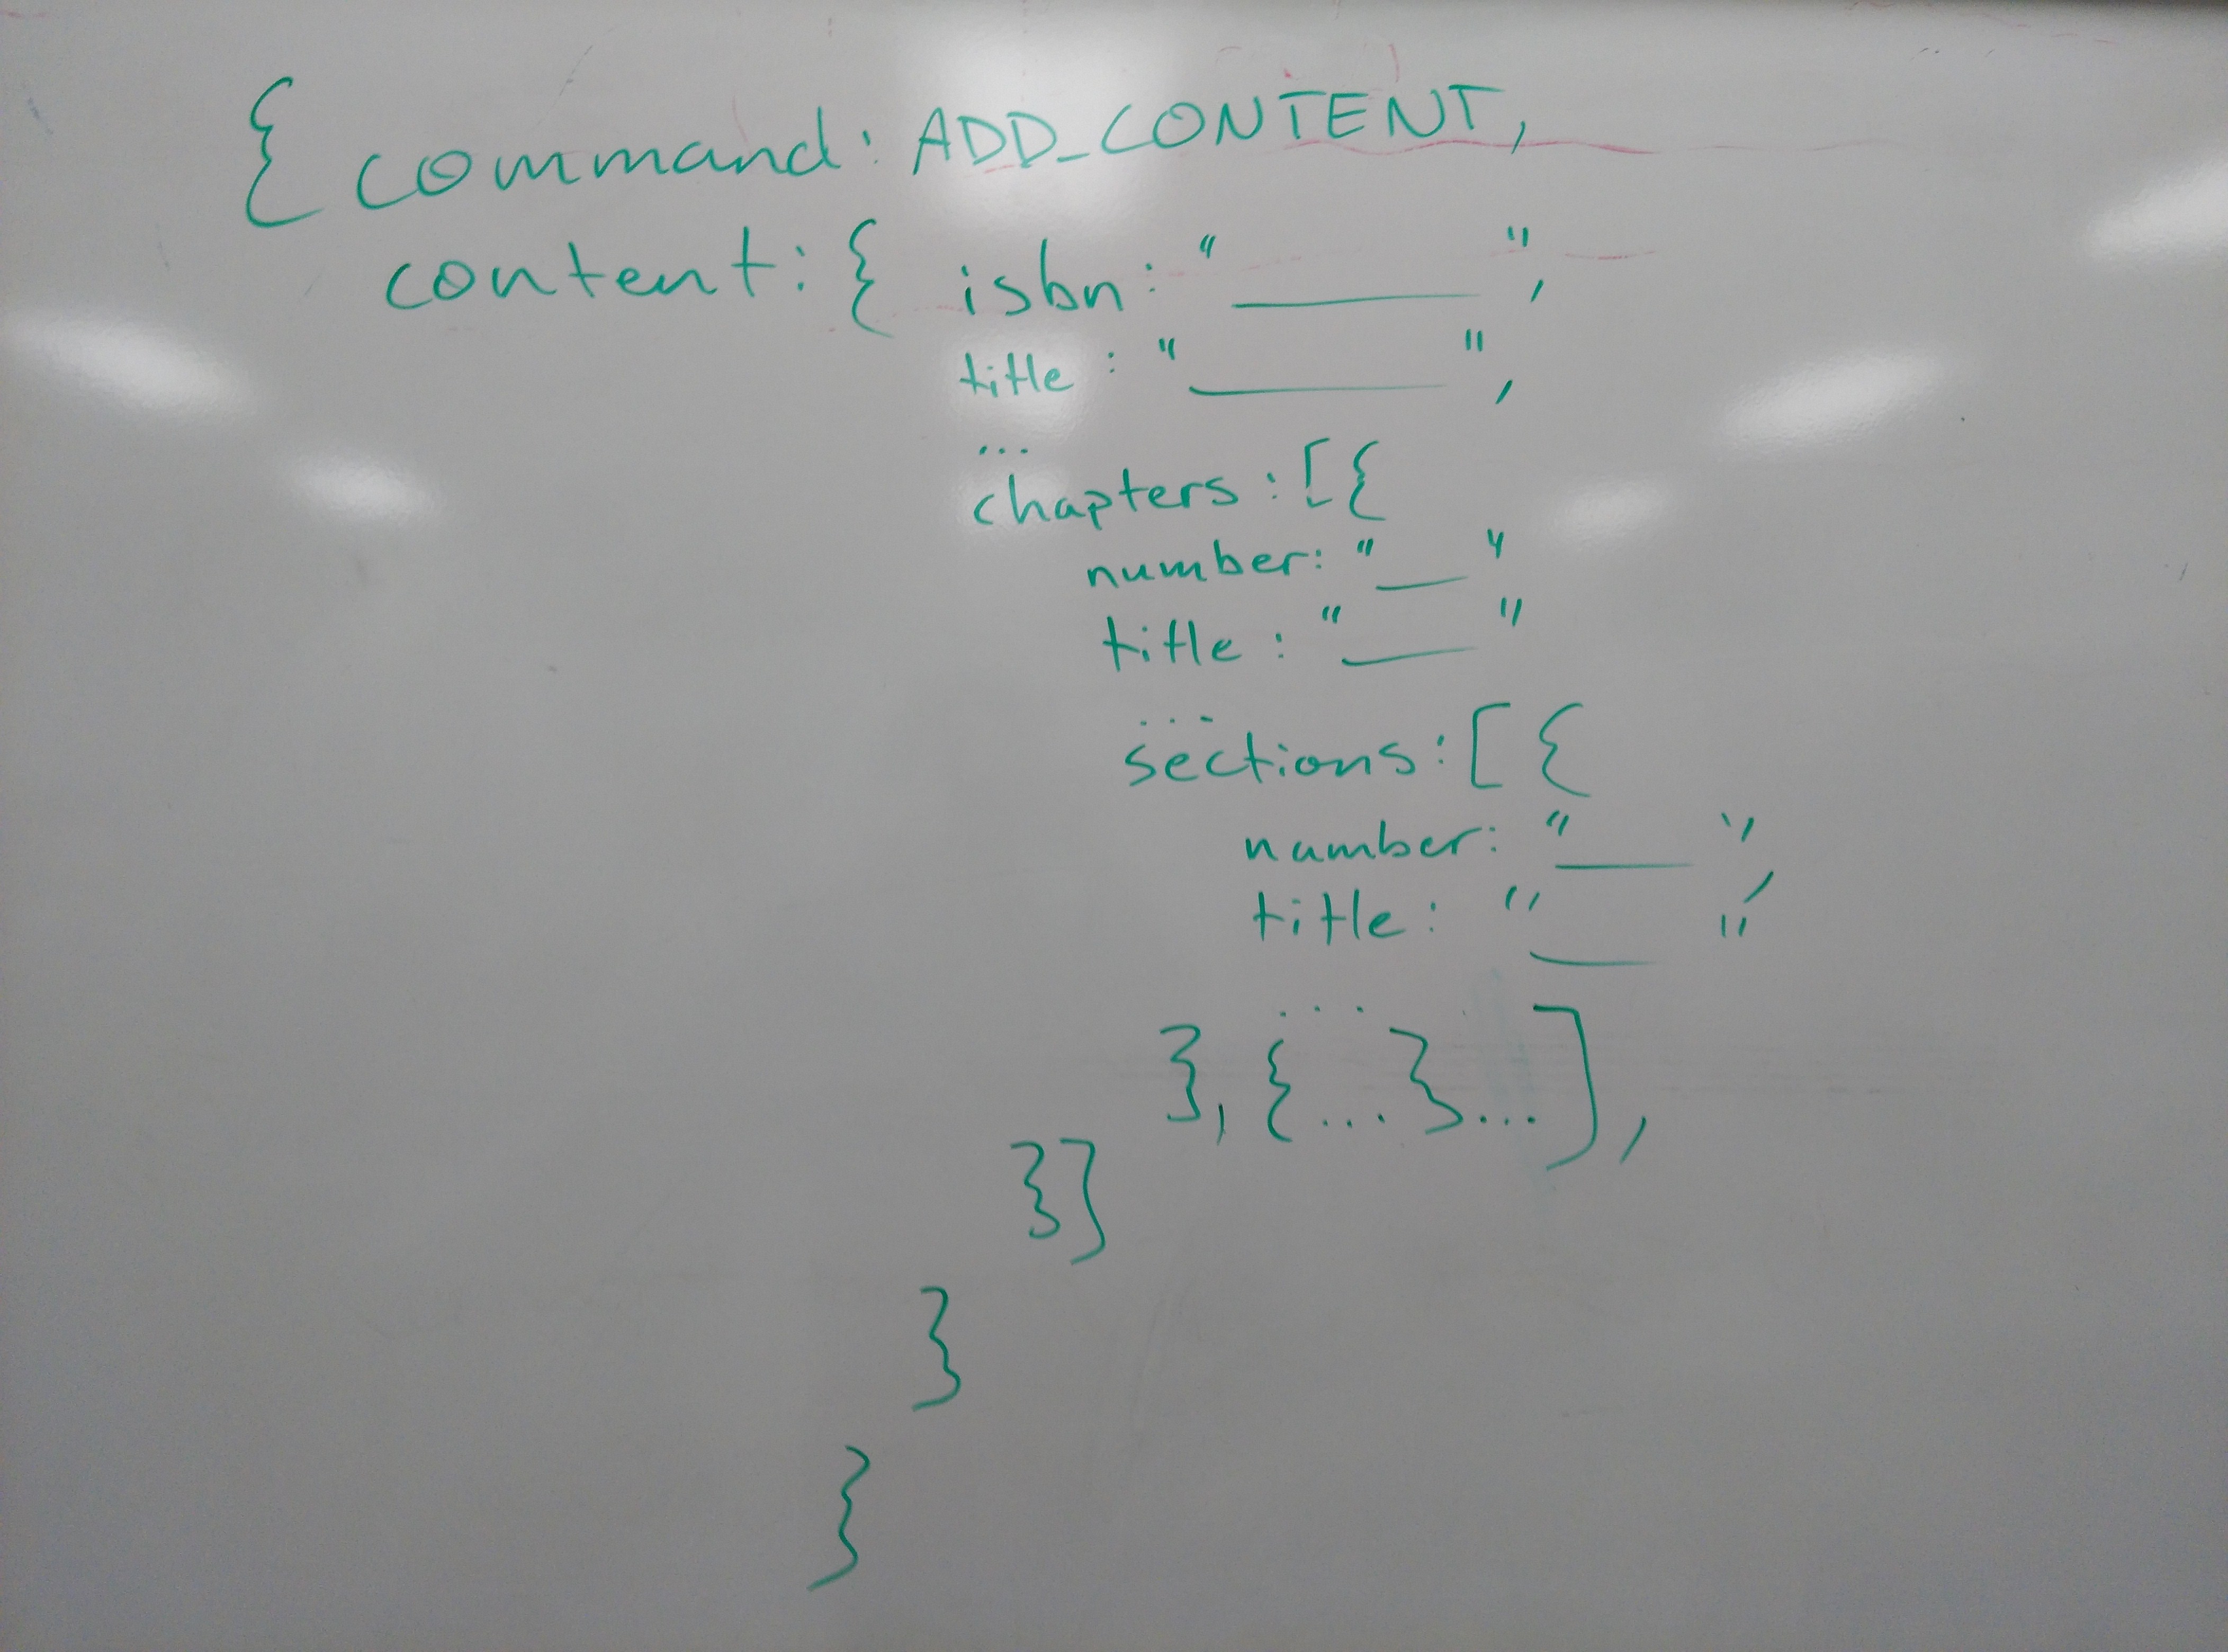 { command: ADD_CONTENT,
content: { isbn: "_______",
title: "_______",
...
chapters: [{
number: "___"
title: "___"
...
sections: [{
number: "___",
title: "___"
...
}, {...}...],
}]
}
}